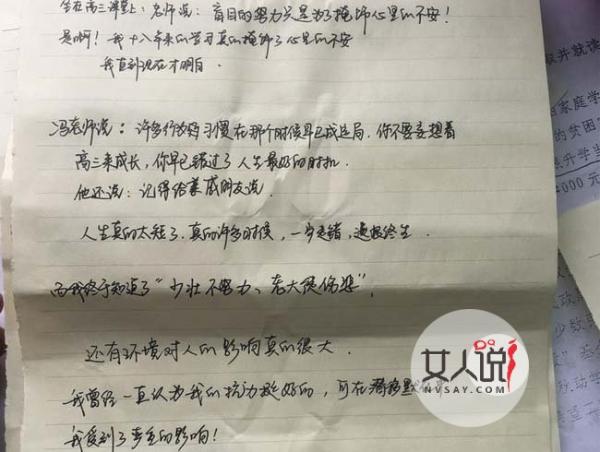 坐在高三课堂上：老师说：盲目的努力只是为了掩饰心里的不安！
是啊！我十八年来的学习真的掩饰了心里的不安
我直到现在才明白．
冯老师说：许多行为的习惯在那个时候早已成定局．你不要妄想着
高三来成长，你早已错过了人生最好的时机．
他还说：记得给亲戚朋友说．
人生真的太短了．真的许多时候，一步走错，遗恨终生．
而我终于知道了“少壮不努力、老大徒伤悲”．
还有环境对人的影响真的很大．
我曾经一直认为我的抗力挺好的，可在潜移默
我受到了严重的影响！
取并就读
家庭学
的贫困
升学当
000元
少数
女人说
NVSAY.COM